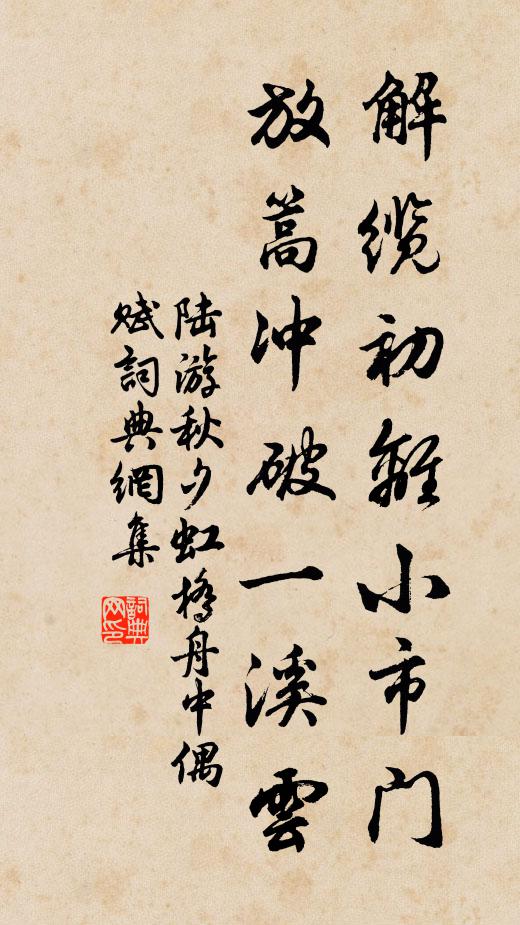 解缆初離小市門
放蒿冲破一溪雲
陆游秋夕虹橋舟中偶
赋詞典網集
詞典
网印